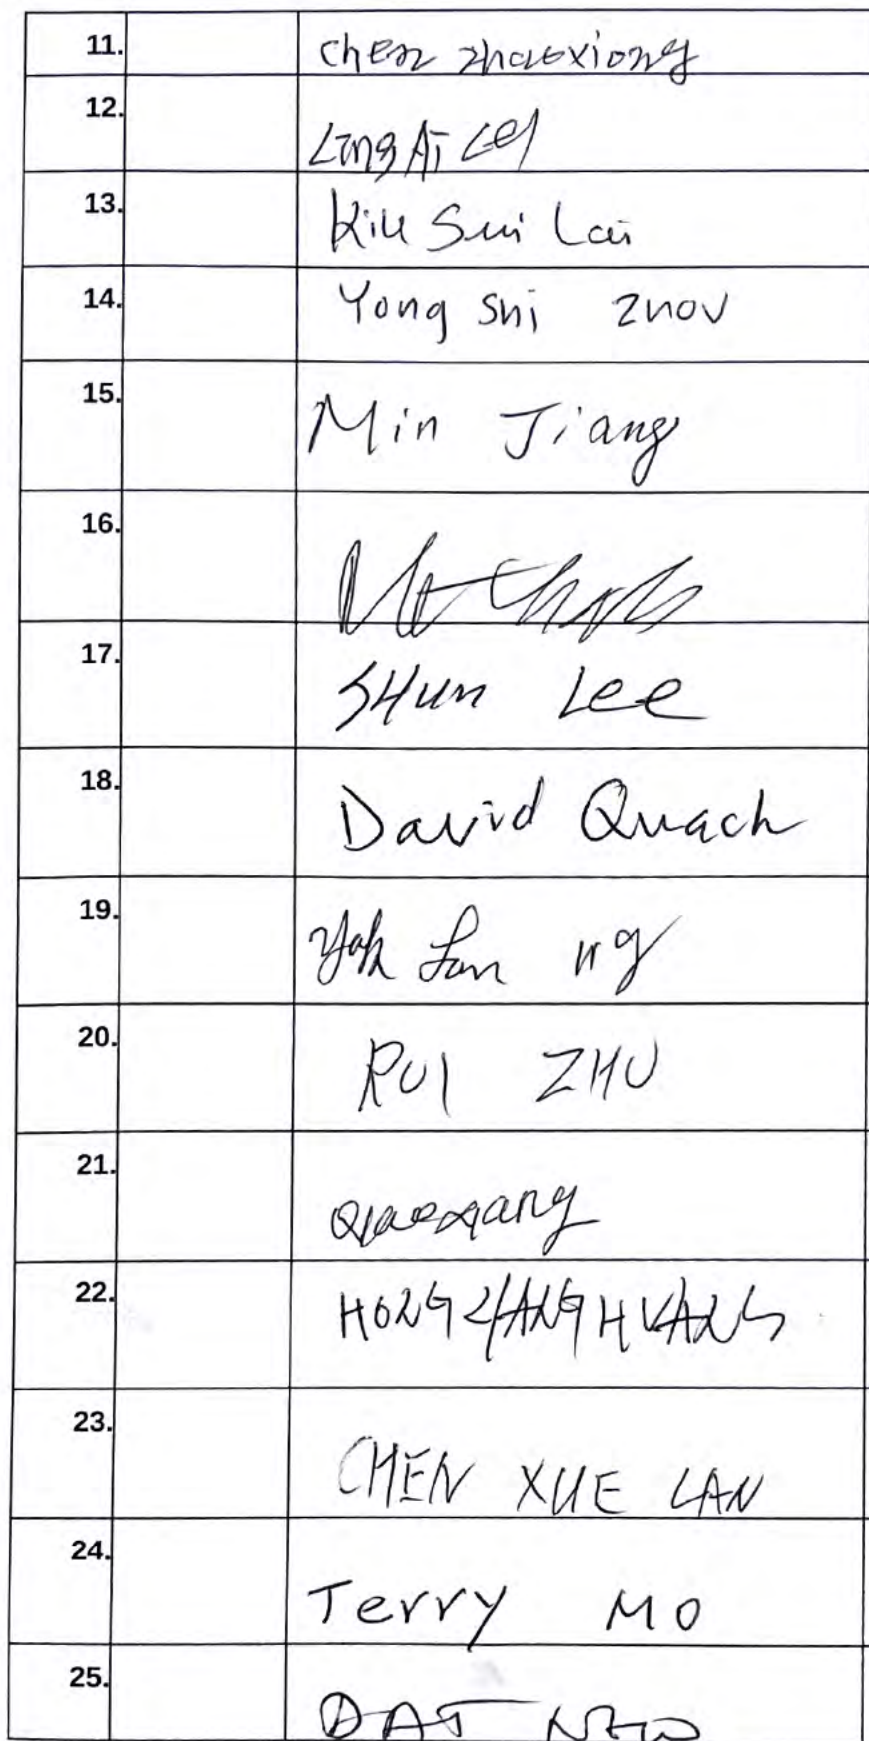 11. Chen Zhaoxiong
12. Ling Ai Lej
13. Kiu Sui Lai
14. Yong Shi Zhou
15. Min Jiang
16.
17. SHun Lee
18. David Quach
19. Yok Lan ng
20. RUI ZHU
21.
22. HONG HUANG
23. CHEN XUE LAN
24. Terry Mo
25. DAT